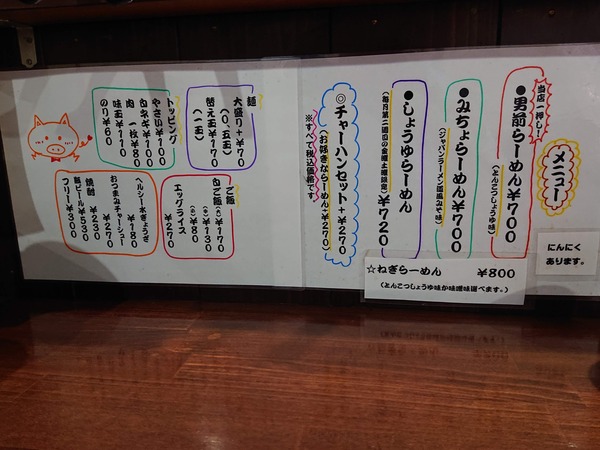 メニュー
当店一押し！
●男前らーめん¥700
(とんこつしょうゆ味)
●みちょらーめん¥700
(ジャパンラーメン風風みそ味)
●しょうゆらーめん
(毎月第二週目の金曜土曜限定)¥720
◎チャーハンセット+¥270
(お好きならーめん+¥270)
※すべて税込価格です
にんにく
あります。
☆ねぎらーめん ¥800
(とんこつしょうゆ味か味噌味選べます。)
麺
大盛り+¥70
(0、5玉)
替え玉¥170
(一玉)
トッピング
やさい¥100
白ネギ¥100
肉 一枚¥80
味玉¥110
のり¥60
ご飯
白ご飯(大)¥170
(中)¥130
(小)¥80
エッグライス
¥270
ヘルシー水ぎょうざ
¥180
おつまみチャーシュー
¥270
焼酎 ¥230
瓶ビール¥530
フリー¥300